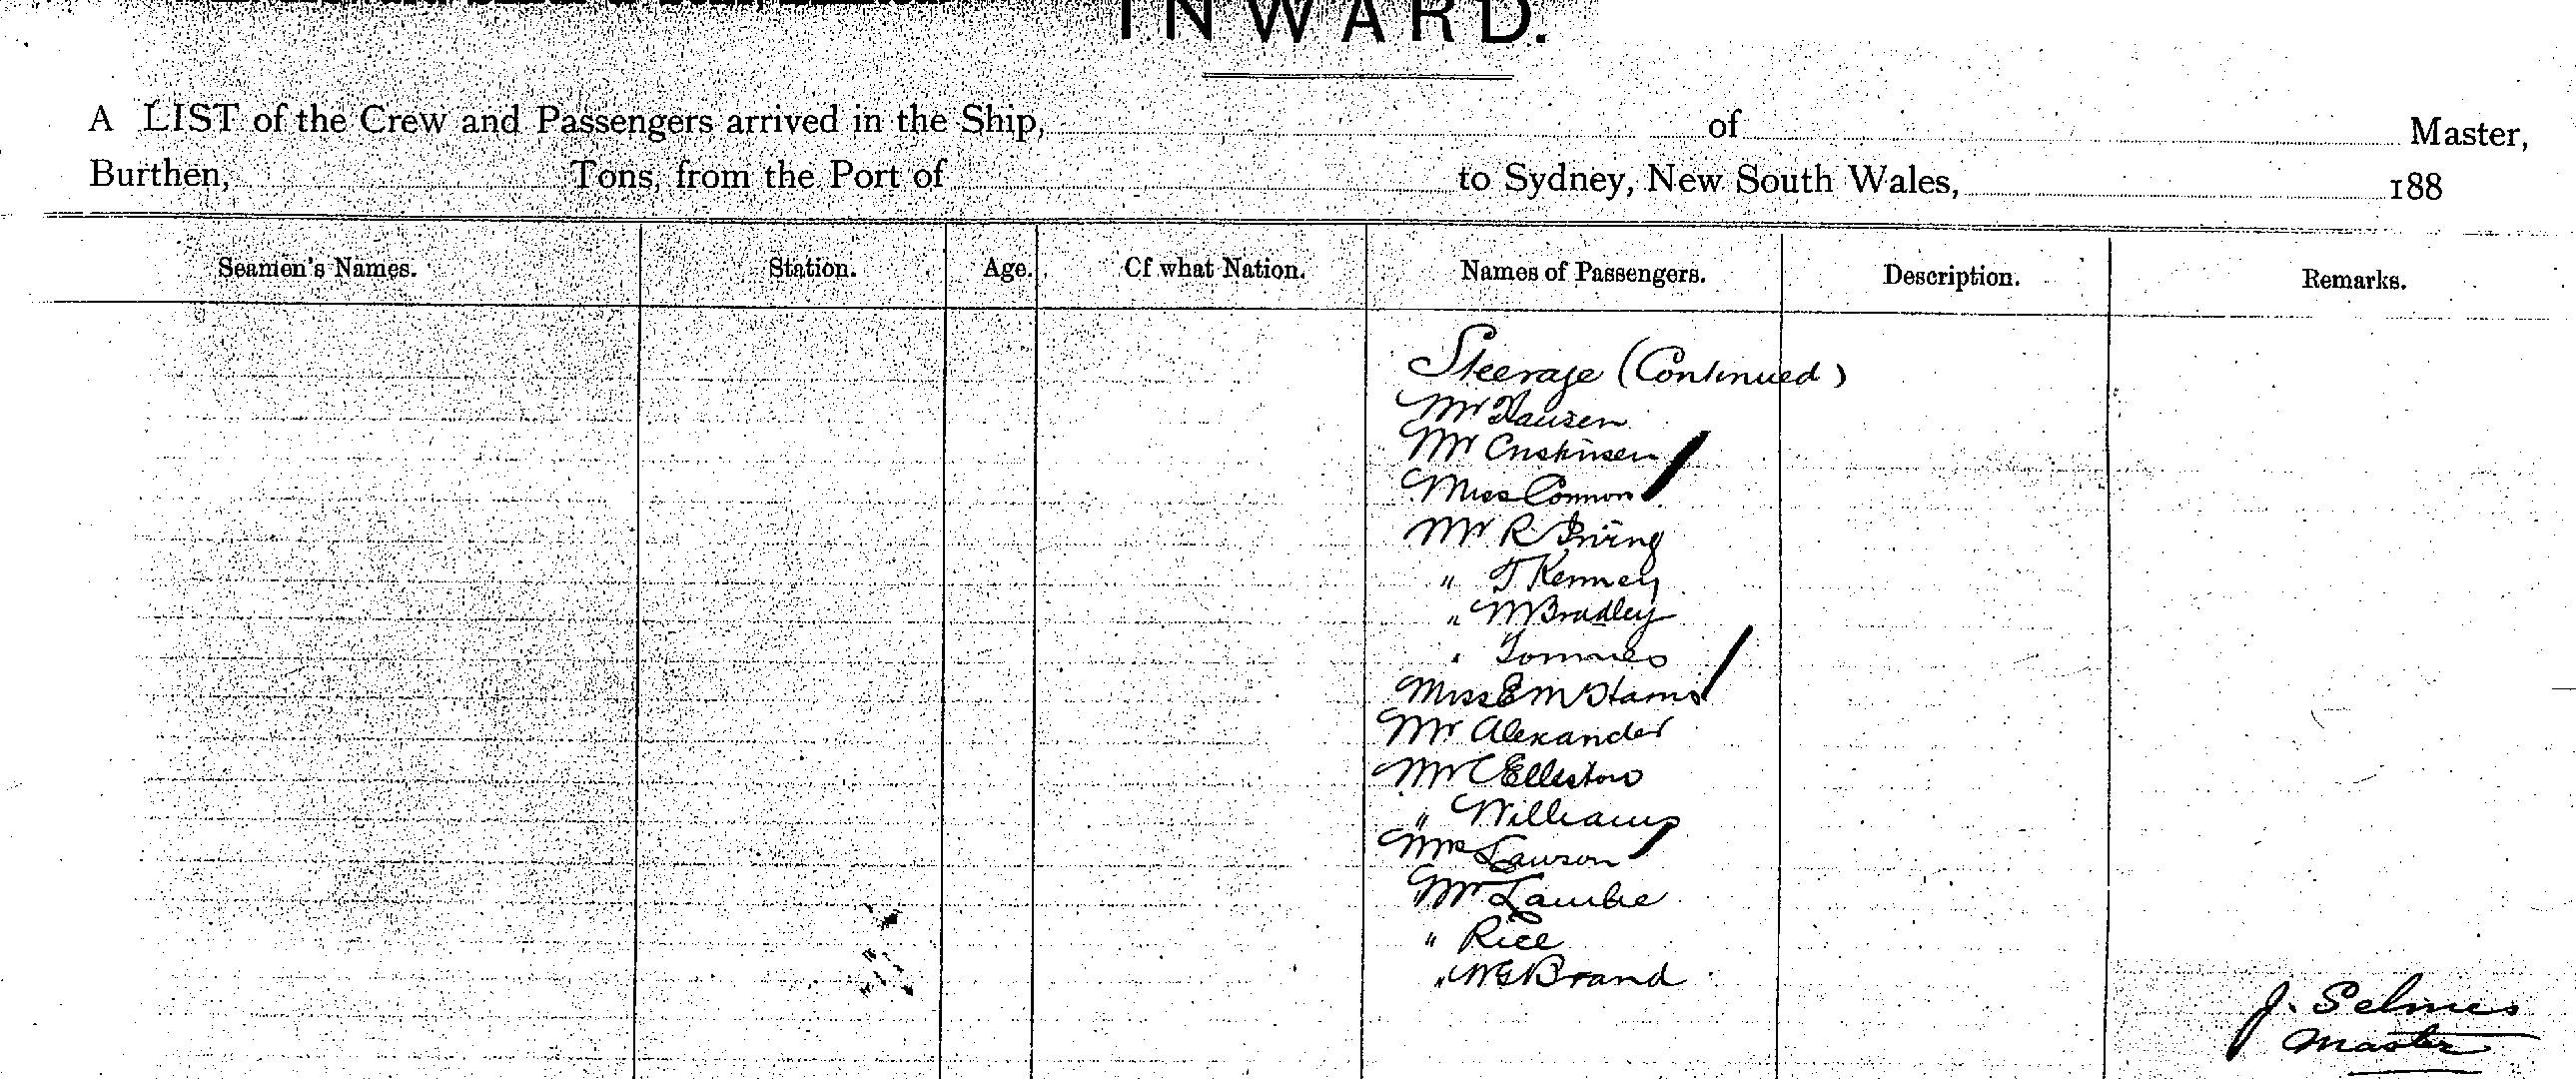 INWARD.
A LIST of the Crew and Passengers arrived in the Ship, of Master,
Burthen, Tons, from the Port of to Sydney, New South Wales, 188
Seamen's Names. Station. Age. Of what Nation. Names of Passengers. Description. Remarks.
Steerage (Continued)
Mr Hausen
Mr Cristinsen
Miss Connor
Mr R Irving
" T Kenney
" W Bradley
"
Miss E
Mr Alexander
Mr C Elliston
" Williams
Mrs Lawson
Mr Lambe
" Rice
" W G Brand
J. Selmes
Master